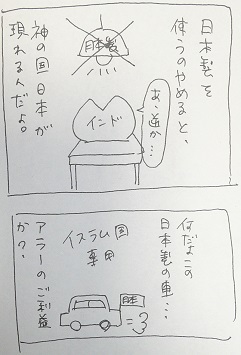 日本製を
使うのやめると、
日本製
神の国日本が
現れるんだよ。
あ、逆か…
インド
何だよこの
日本製の車…
イスラム国
専用
日本
アラーのご利益
か?